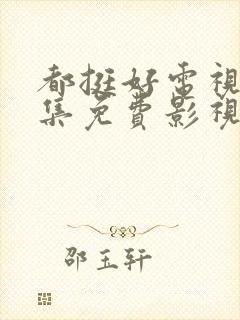 都挺好電視
集免費影視
邵玉軒